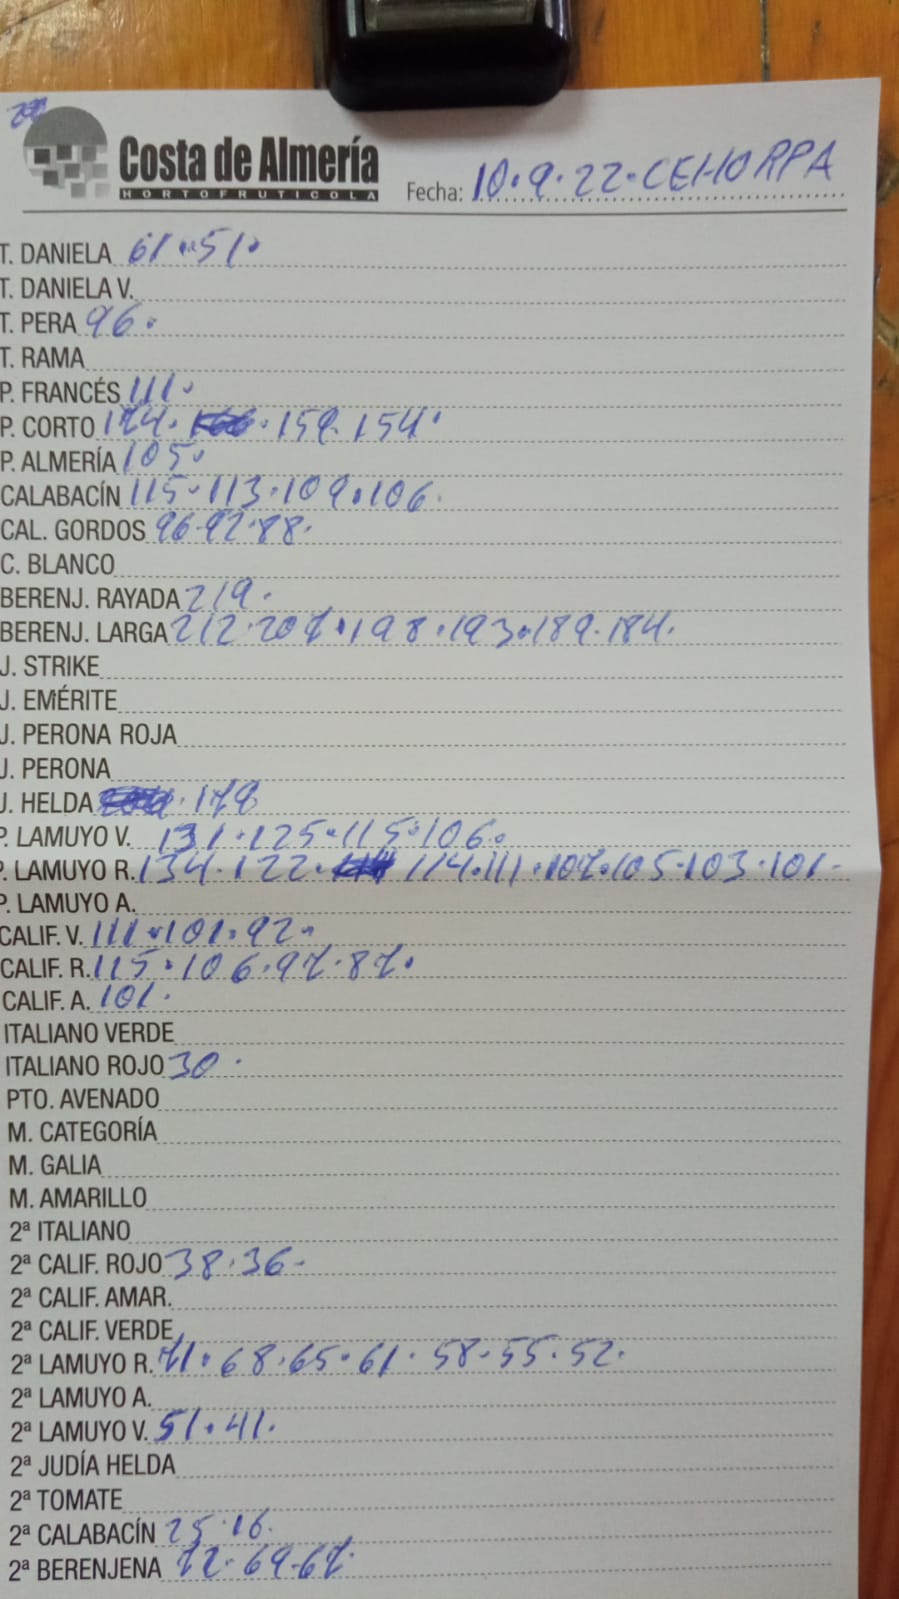 Costa de Almería
HORTOFRUTICOLA
Fecha: 10.9.22.CEHORPA
T. DANIELA 61.51.
T. DANIELA V.
T. PERA 96.
T. RAMA
P. FRANCÉS 111.
P. CORTO 174. 159. 154.
P. ALMERÍA 105.
CALABACÍN 115.113.109.106.
CAL. GORDOS 96.92.88.
C. BLANCO
BERENJ. RAYADA 219.
BERENJ. LARGA 212.207.198.193.189.184.
J. STRIKE
J. EMÉRITE
J. PERONA ROJA
J. PERONA
J. HELDA .178
P. LAMUYO V. 131.125.115.106.
P. LAMUYO R. 134.122. 114.111.107.105.103.101.
P. LAMUYO A.
CALIF. V. 111.101.92.
CALIF. R. 115.106.97.87.
CALIF. A. 101.
ITALIANO VERDE
ITALIANO ROJO 30.
PTO. AVENADO
M. CATEGORÍA
M. GALIA
M. AMARILLO
2ª ITALIANO
2ª CALIF. ROJO 38.36.
2ª CALIF. AMAR.
2ª CALIF. VERDE
2ª LAMUYO R. 71.68.65.61.58.55.52.
2ª LAMUYO A.
2ª LAMUYO V. 51.41.
2ª JUDÍA HELDA
2ª TOMATE
2ª CALABACÍN 25.16.
2ª BERENJENA 72.69.67.